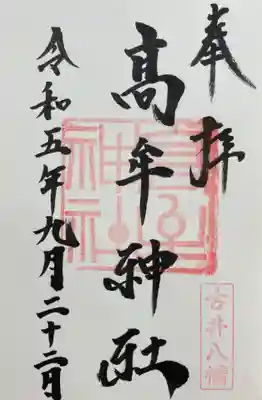 奉拝
古井八幡
高牟神社
令和五年九月二十二日